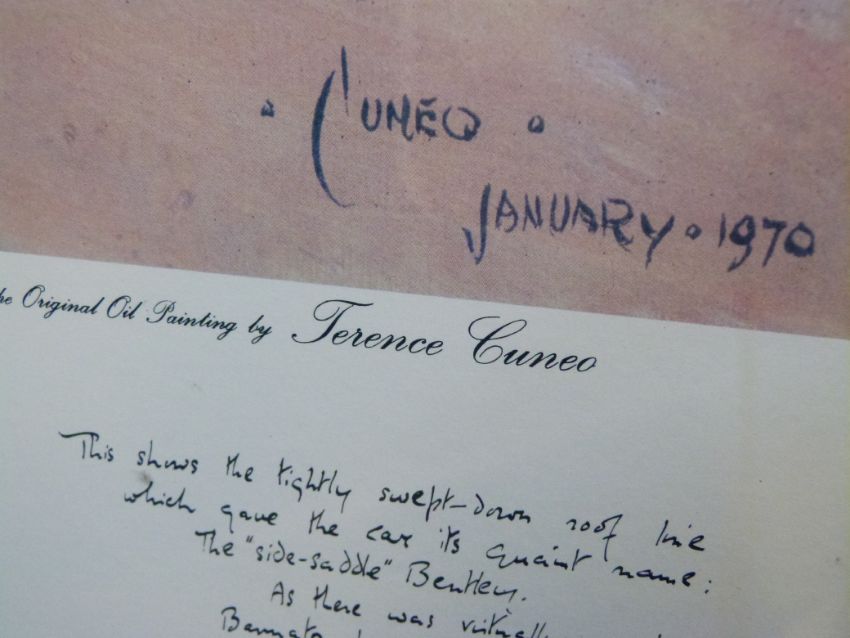 CUNEO
JANUARY • 1970
he Original Oil Painting by Terence Cuneo
This shows the tightly swept-down roof line
which gave the car its quaint name:
The "side-saddle" Bentley.
As there was virtually
Barnato